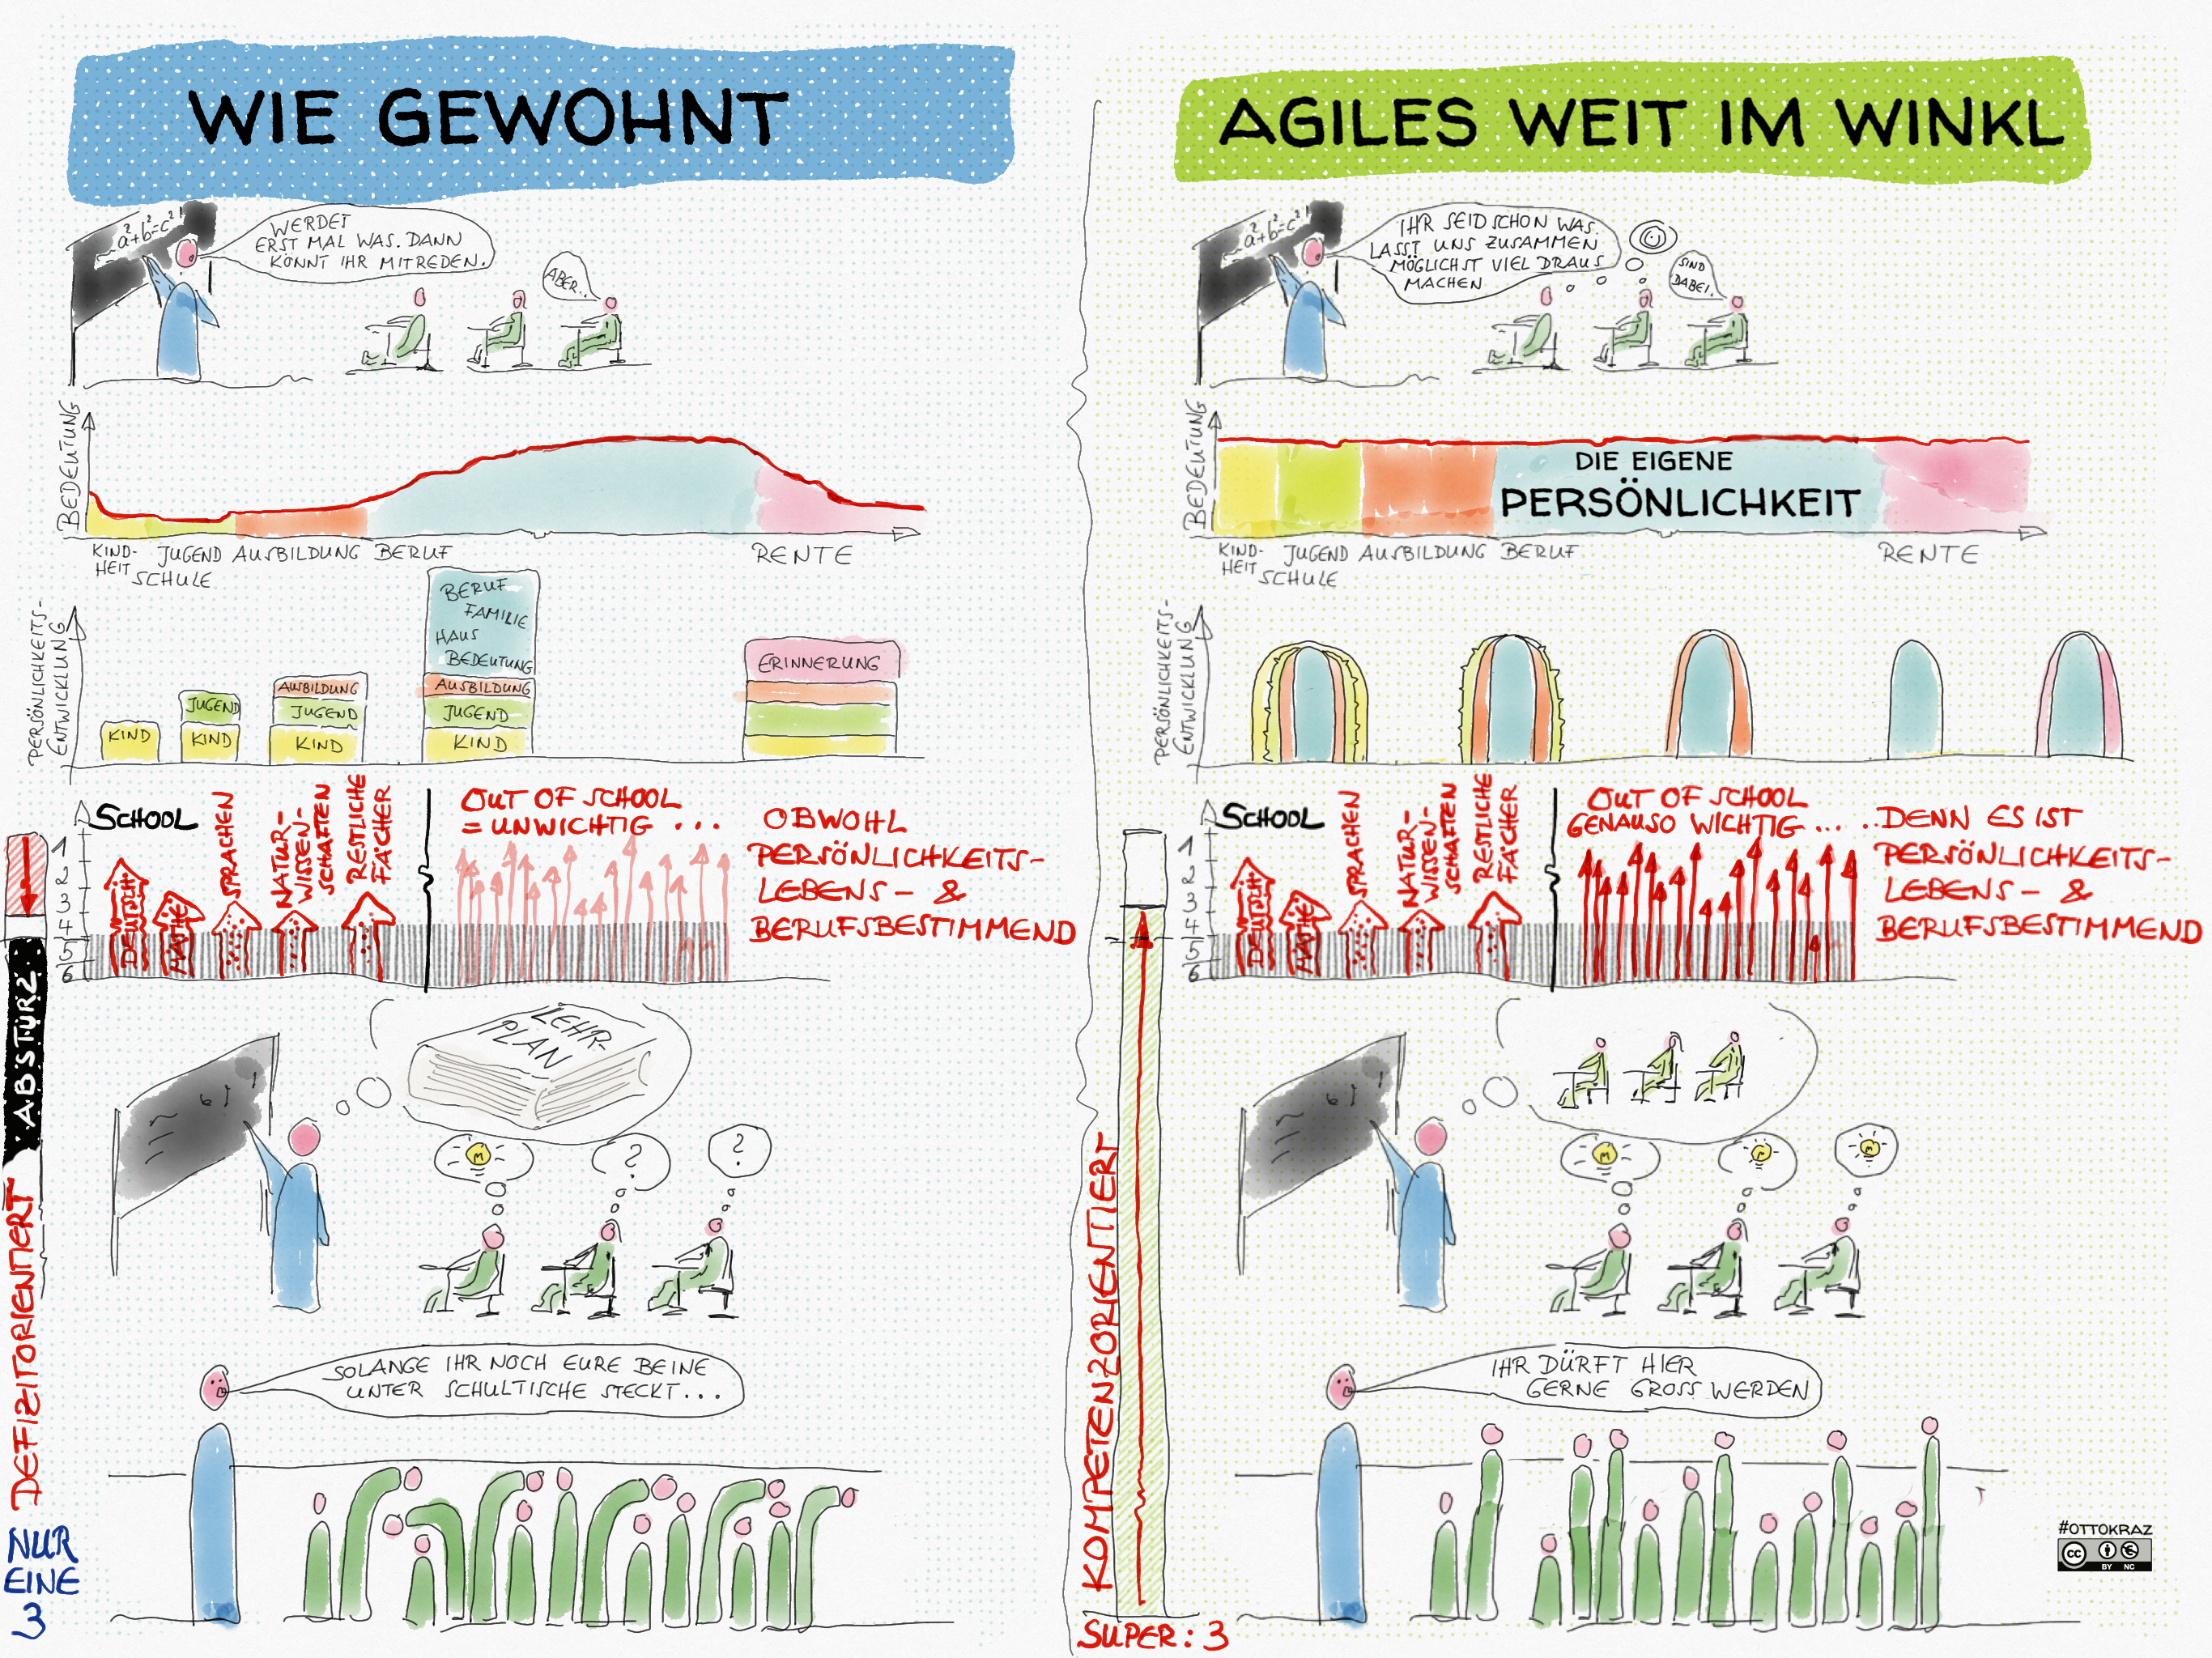 WIE GEWOHNT
a²+b²=c²!
WERDET
ERST MAL WAS. DANN
KÖNNT IHR MITREDEN.
ABER..
BEDEUTUNG
KIND-
HEIT
JUGEND
SCHULE
AUSBILDUNG
BERUF
RENTE
PERSÖNLICHKEITS-
ENTWICKLUNG
KIND
JUGEND
KIND
AUSBILDUNG
JUGEND
KIND
BERUF
FAMILIE
HAUS
BEDEUTUNG
AUSBILDUNG
JUGEND
KIND
ERINNERUNG
SCHOOL
1
2
3
4
5
6
DEUTSCH
MATHE
SPRACHEN
NATUR-
WISSEN-
SCHAFTEN
RESTLICHE
FÄCHER
OUT OF SCHOOL
= UNWICHTIG ...
OBWOHL
PERSÖNLICHKEITS-
LEBENS- &
BERUFSBESTIMMEND
ABSTURZ
DEFIZITORIENTIERT
NUR
EINE
3
LEHR-
PLAN
?
?
SOLANGE IHR NOCH EURE BEINE
UNTER SCHULTISCHE STECKT...
AGILES WEIT IM WINKL
a²+b²=c²!
IHR SEID SCHON WAS.
LASST UNS ZUSAMMEN
MÖGLICHST VIEL DRAUS
MACHEN
SIND
DABEI.
BEDEUTUNG
DIE EIGENE
PERSÖNLICHKEIT
KIND-
HEIT
JUGEND
SCHULE
AUSBILDUNG
BERUF
RENTE
PERSÖNLICHKEITS-
ENTWICKLUNG
SCHOOL
1
2
3
4
5
6
DEUTSCH
MATHE
SPRACHEN
NATUR-
WISSEN-
SCHAFTEN
RESTLICHE
FÄCHER
OUT OF SCHOOL
GENAUSO WICHTIG ...
..DENN ES IST
PERSÖNLICHKEITS-
LEBENS- &
BERUFSBESTIMMEND
KOMPETENZORIENTIERT
SUPER: 3
IHR DÜRFT HIER
GERNE GROSS WERDEN
#OTTOKRAZ
CC
BY NC